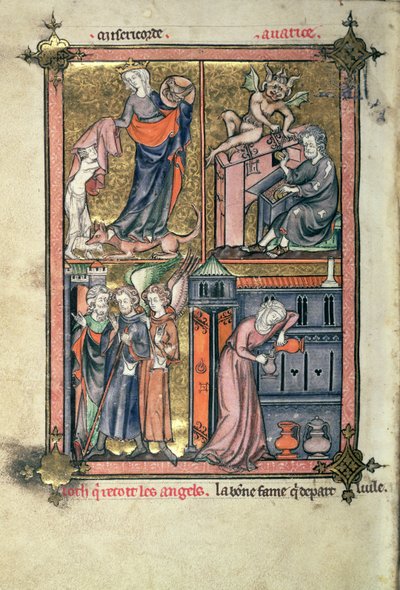 misericorde avarice
loth q̃ recoit les angels. la bõne fame q̃ depart luile.